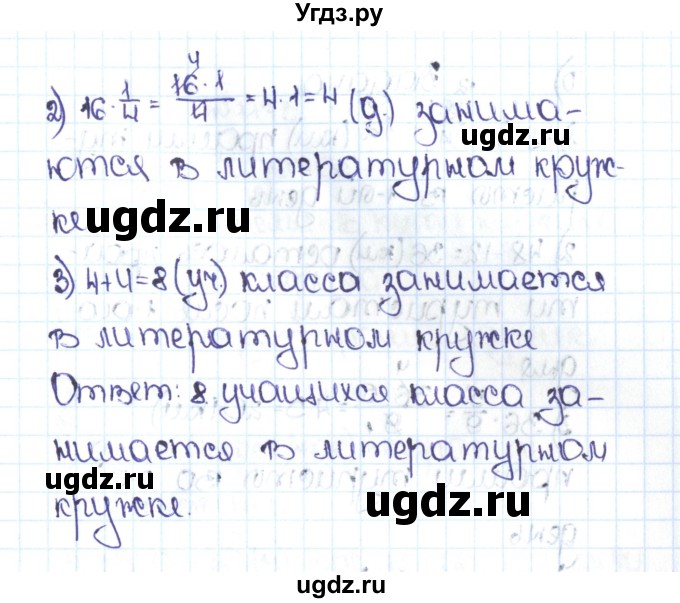 Угдз.ру
2) 16 · 1/4 = 16 · 1/4 = 4 · 1 = 4 (д.) занима-
ugdz.ru
ются в литературном круж-
ке ugdz.ru
3) 4+4=8 (уч.) класса занимается
в литературном кружке
Ответ: 8 учащихся класса за-
нимается в литературном
ugdz.ru
кружке. ugdz.ru
ugdz.ru